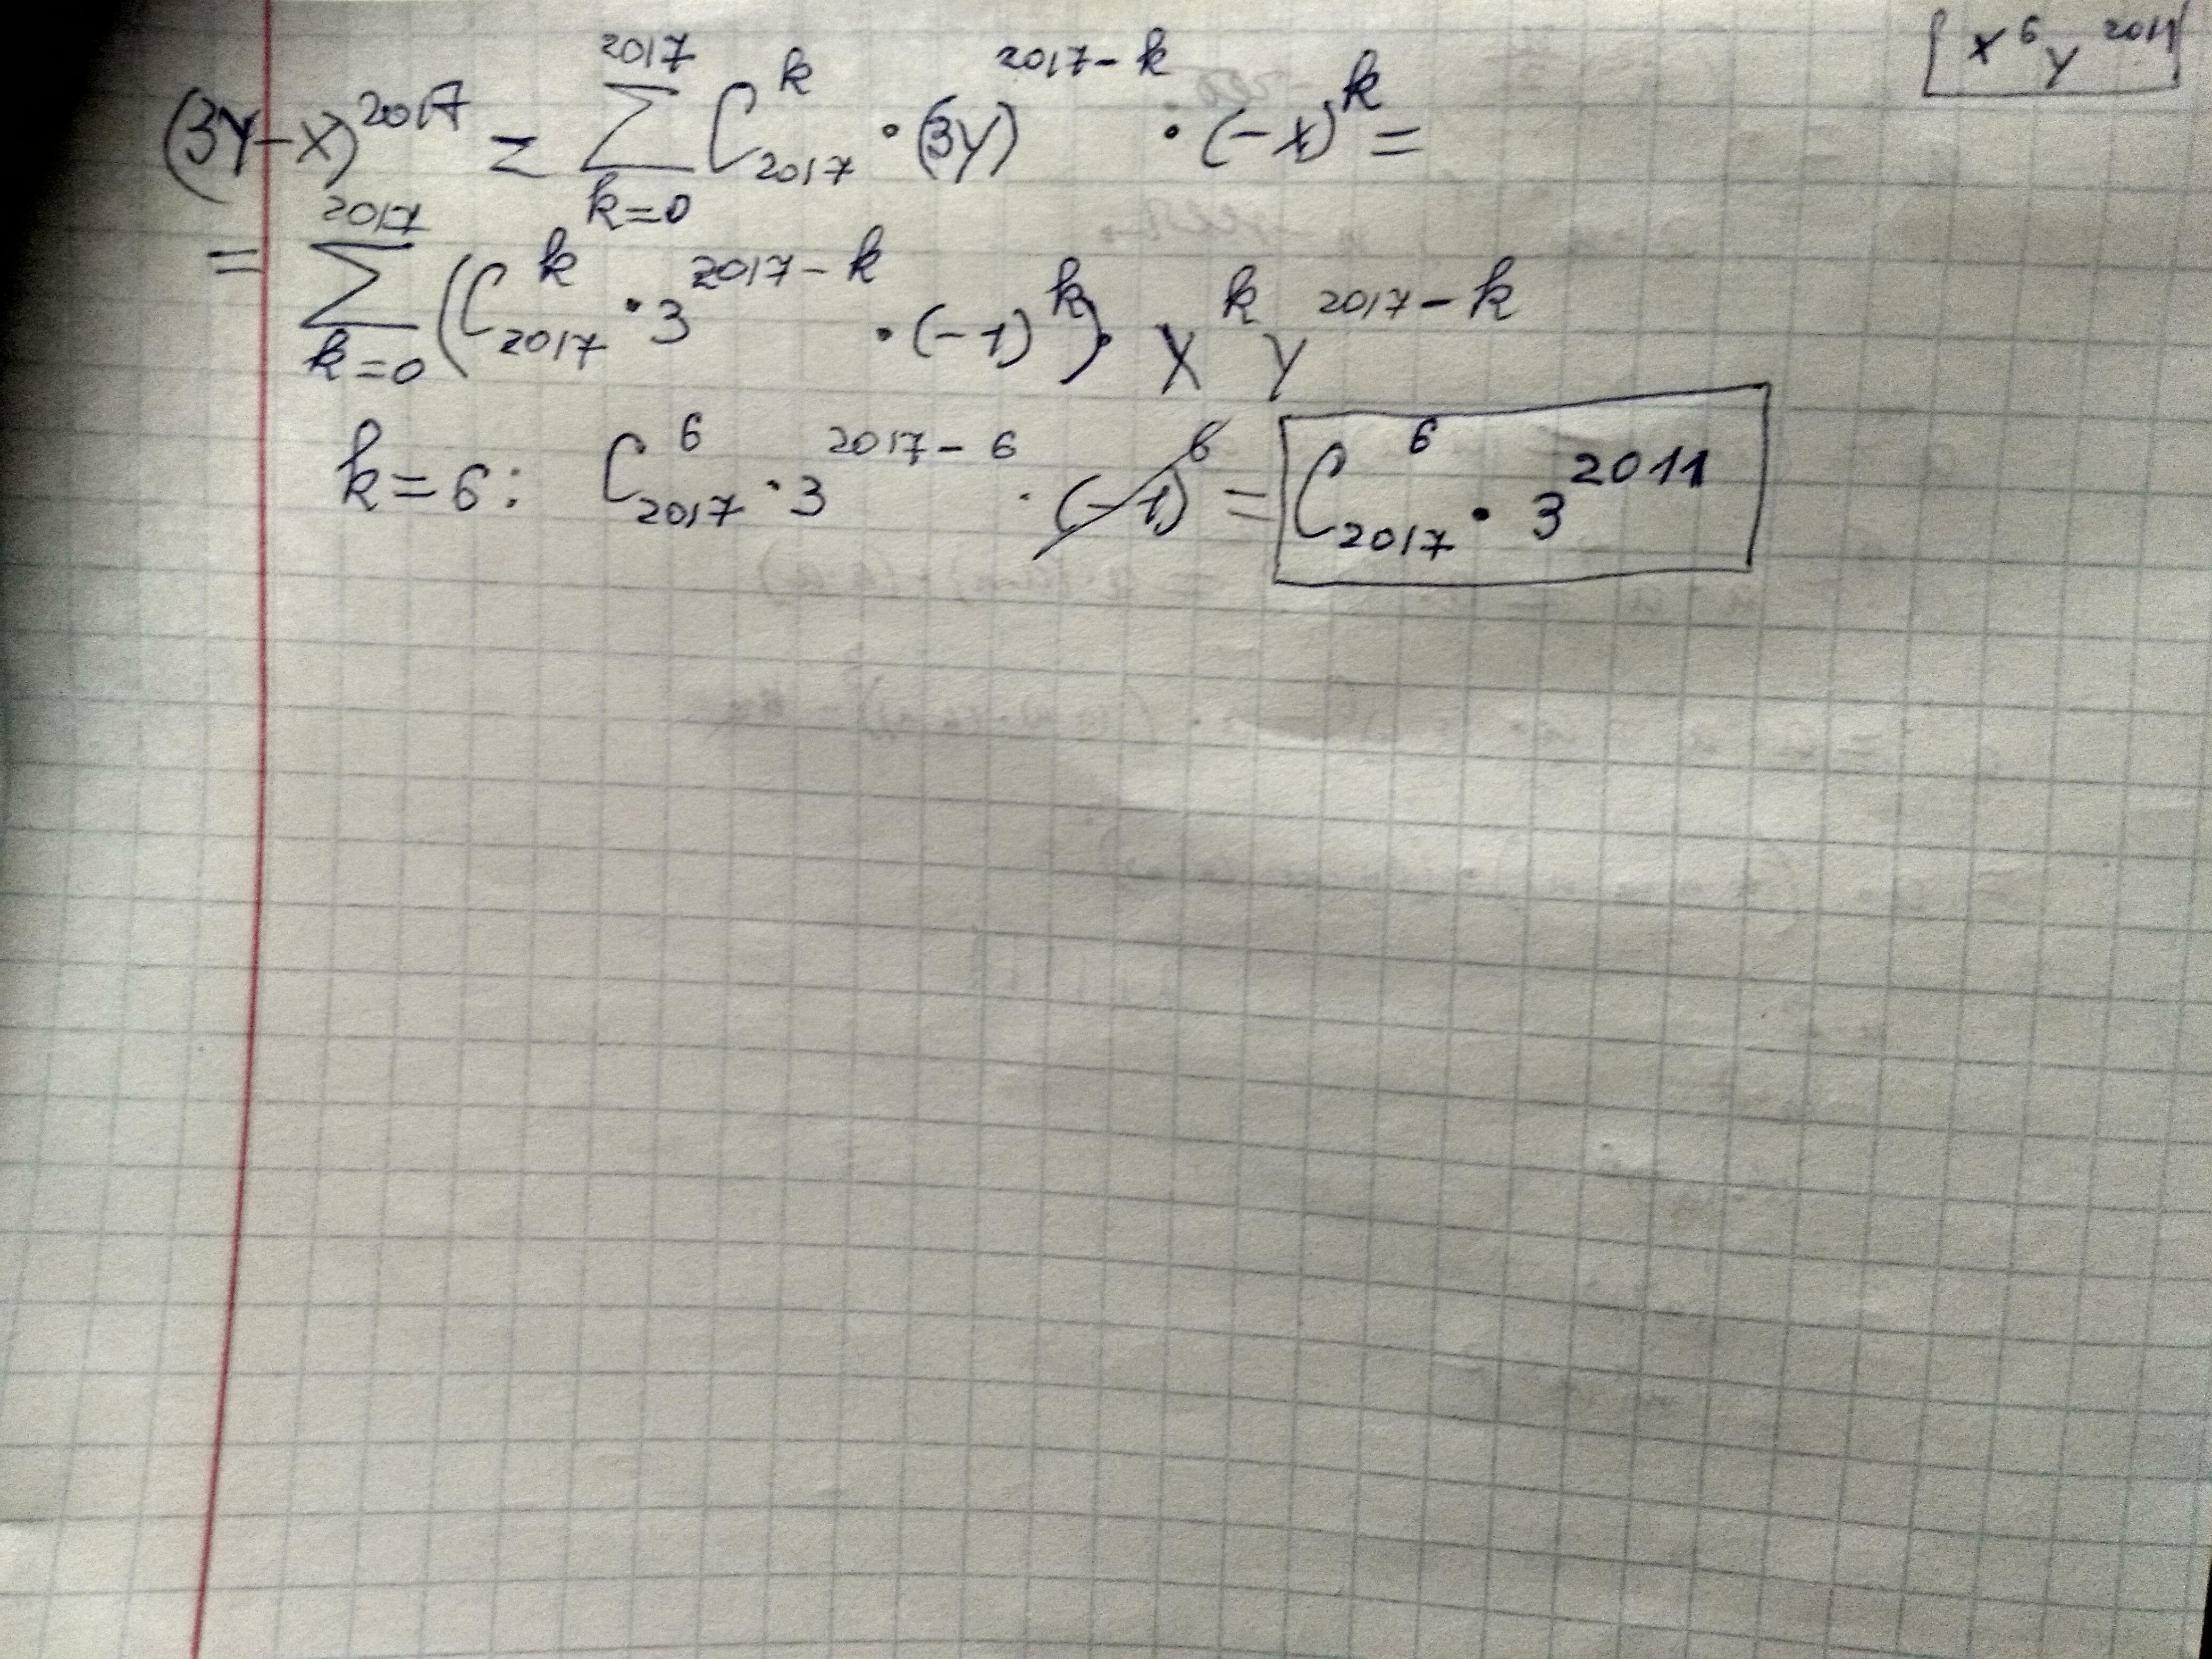 x⁶y²⁰¹¹
(3y-x)²⁰¹⁷ = ∑_{k=0}^{2017} C_{2017}^{k} · (3y)^{2017-k} · (-x)^{k} =
= ∑_{k=0}^{2017} (C_{2017}^{k} · 3^{2017-k} · (-1)^{k}) · x^{k} y^{2017-k}
k=6: C_{2017}^{6} · 3^{2017-6} · (-1)^{6} = C_{2017}^{6} · 3^{2011}